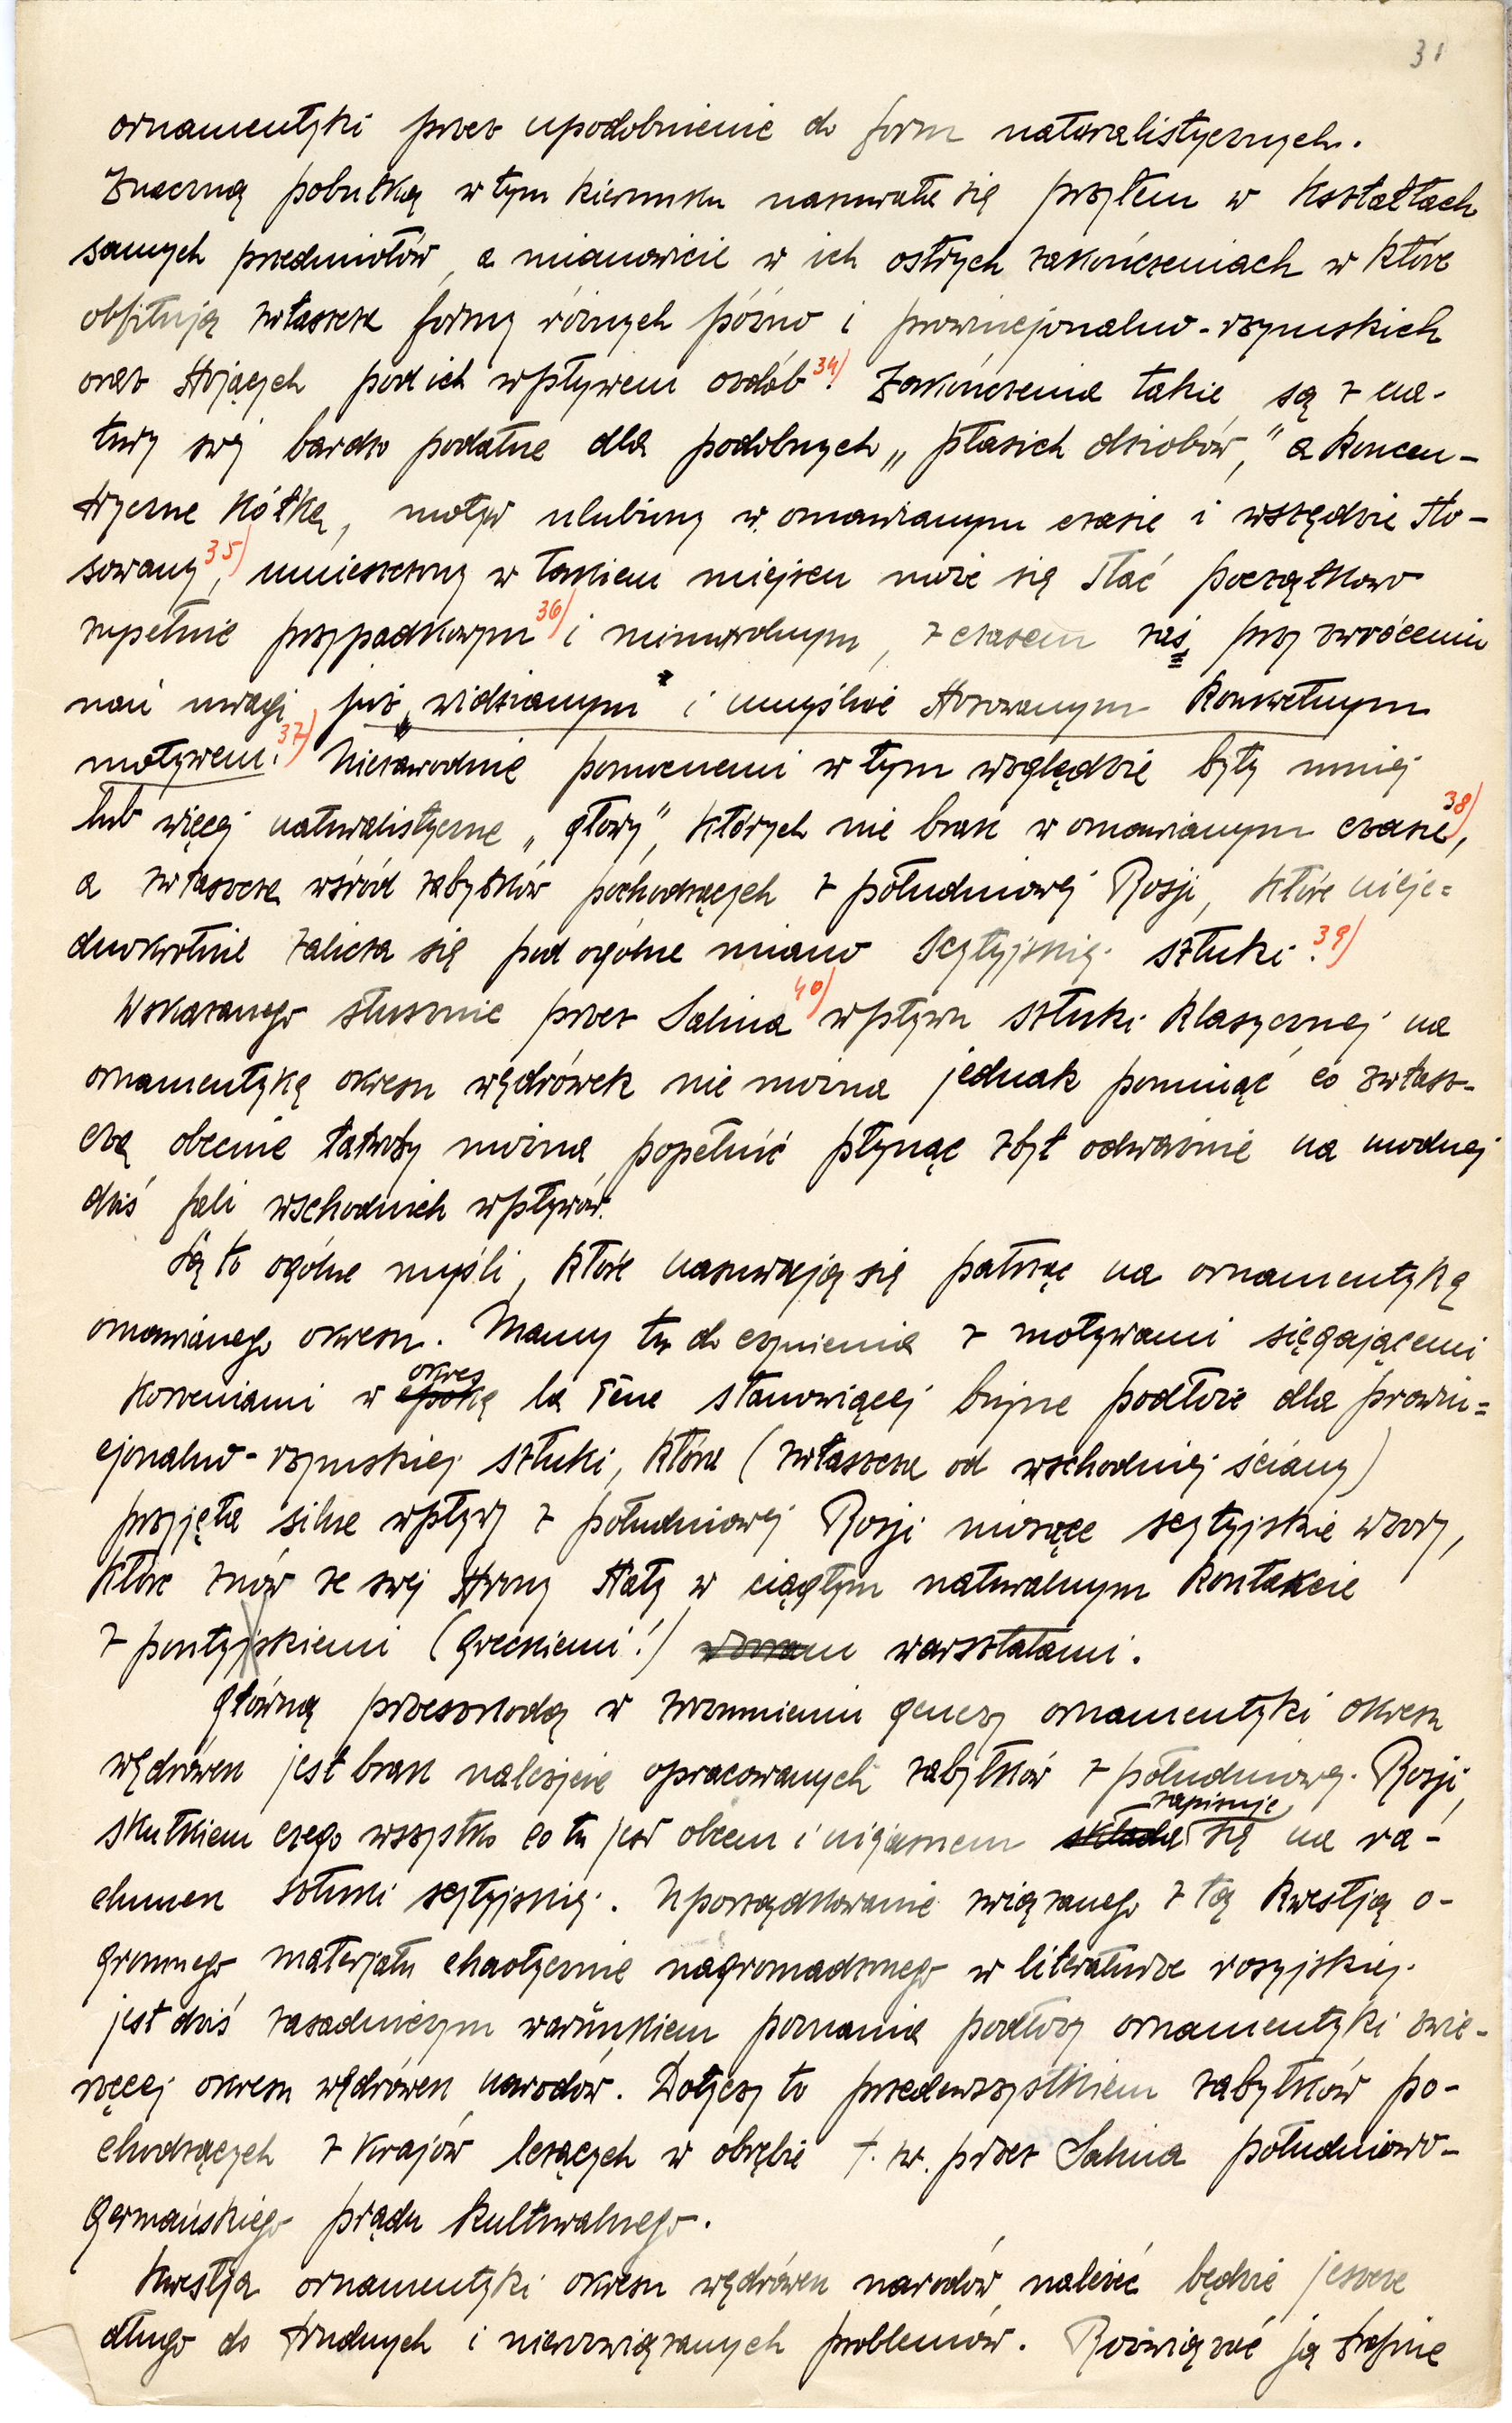 31
ornamentyki przez upodobnienie do form naturalistycznych.
Znaczną pobutką w tym kierunku nasuwała się przytem w kształtach
samych przedmiotów, a mianowicie w ich ostrych zakończeniach w które
obfitują zwłaszcza formy różnych późno i prowincjonalno-rzymskich
oraz stojących pod ich wpływem ozdób 34). Zakończenia takie są z na-
tury swej bardzo podatne dla podobnych „ptasich dziobów," a koncen-
tryczne kółka, motyw ulubiony w omawianym czasie i wszędzie sto-
sowany 35), umieszczony w takiem miejscu może się stać początkowo
zupełnie przypadkowym 36) i mimowolnym, z czasem zaś, przy zwróceniu
nań uwagi już „widzianym" i umyślnie stosowanym konkretnym
motywem. 37) Niezawodnie pomocnemi w tym względzie były mniej
lub więcej naturalistyczne „głowy", których nie brak w omawianym czasie 38),
a zwłaszcza wśród zabytków pochodzących z południowej Rosji, które nieje=
dnokrotnie zalicza się pod ogólne miano scytyjskiej sztuki. 39)
Wskazanego słusznie przez Salina 40) wpływu sztuki klasycznej na
ornamentykę okresu wędrówek nie można jednak pominąć co zwłasz-
cza obecnie łatwoby można popełnić płynąc zbyt odważnie na modnej
dziś fali wschodnich wpływów.
Są to ogólne myśli, które nasuwają się patrząc na ornamentykę
omawianego okresu. Mamy tu do czynienia z motywami sięgającemi
okres
korzeniami w epokę la Tène stanowiącej bujne podłoże dla prowin=
cjonalno-rzymskiej sztuki, która (zwłaszcza od wschodniej ściany)
przyjęła silne wpływy z południowej Rosji niosące scytyjskie wzory,
które znów ze swej strony stały w ciągłym naturalnym kontakcie
z pontyjskiemi (greckiemi!) wzoram warsztatami.
Główną przeszkodą w zrozumieniu genezy ornamentyki okresu
wędrówek jest brak należycie opracowanych zabytków z południowej Rosji,
zapisuje
skutkiem czego wszystko co tu jest obcem i niejasnem składa się na ra-
chunek sztuki scytyjskiej. Uporządkowanie związanego z tą kwestją o-
gromnego materjału chaotycznie nagromadzonego w literaturze rosyjskiej
jest dziś zasadniczym warunkiem poznania podłoży ornamentyki zwie-
rzęcej okresu wędrówek narodów. Dotyczy to przedewszystkiem zabytków po-
chodzących z krajów leżących w obrębie t. zw. przez Salina południowo-
germańskiego prądu kulturalnego.
Kwestja ornamentyki okresu wędrówek narodów należeć będzie jeszcze
długo do trudnych i nierozwiązanych problemów. Rozwiązać ją trafnie